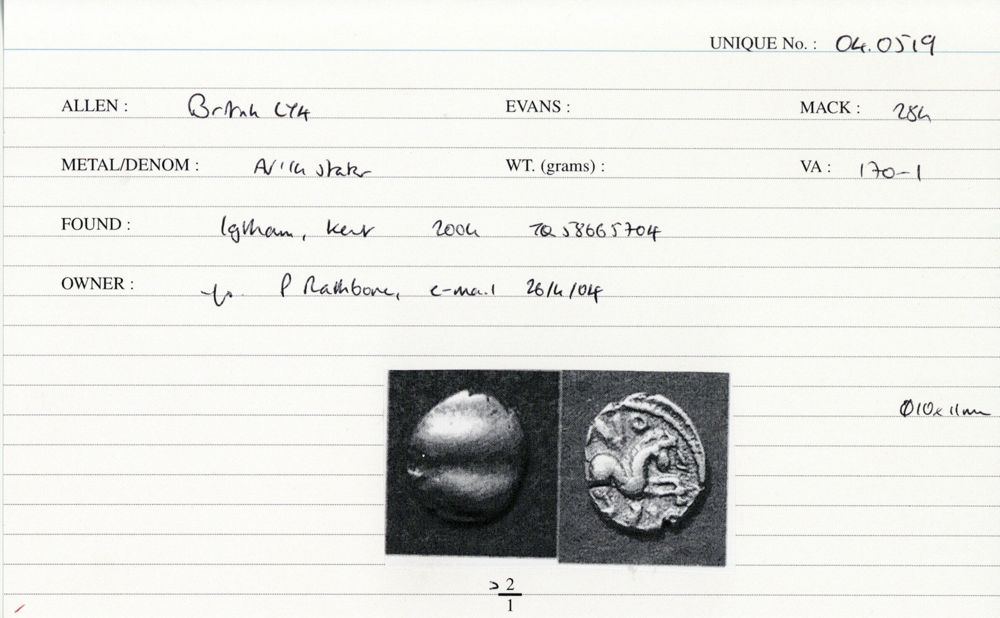 UNIQUE No. : 04.0519
ALLEN : British LY4 EVANS : MACK : 284
METAL/DENOM : AV 1/4 stater WT. (grams) : VA : 170-1
FOUND : Ightham, Kent 2004 TQ 58665704
OWNER : P Rathbone, e-mail 26/4/04
Ø10x11mm
>2
1